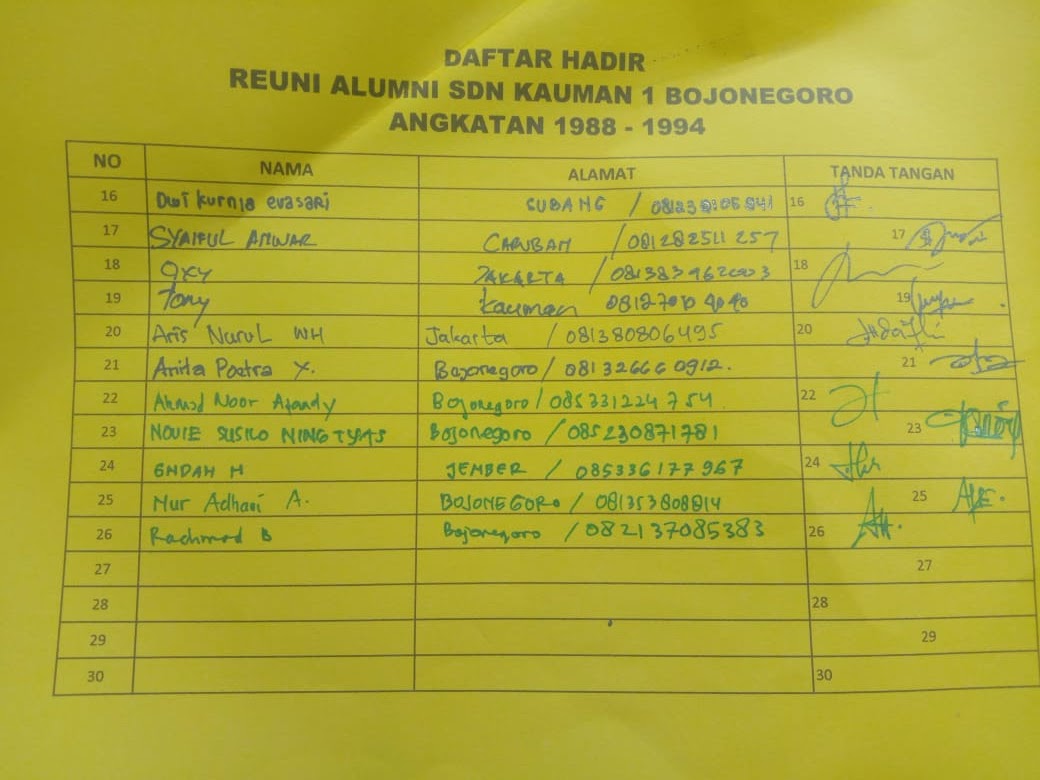 DAFTAR HADIR
REUNI ALUMNI SDN KAUMAN 1 BOJONEGORO
ANGKATAN 1988 - 1994
NO NAMA ALAMAT TANDA TANGAN
16 Dwi kurnia evasari SUBANG / 16
17 SYAIFUL ANWAR CARUBAN / 081282511257 17
18 Oxy JAKARTA / 081383962003 18
19 Tony Kauman 19
20 Aris Nurul WH Jakarta / 081380806495 20
21 Anita Poetra Y. Bojonegoro / 081326660912. 21
22 Ahmad Noor Afandy Bojonegoro / 085331224754 22
23 NOVIE SUSILO NINGTYAS Bojonegoro / 085230871781 23
24 ENDAH M JEMBER / 085336177967 24
25 Nur Adhani A. BOJONEGORO / 081353808814 25
26 Rachmad B Bojonegoro / 082137085383 26
27 27
28 28
29 29
30 30